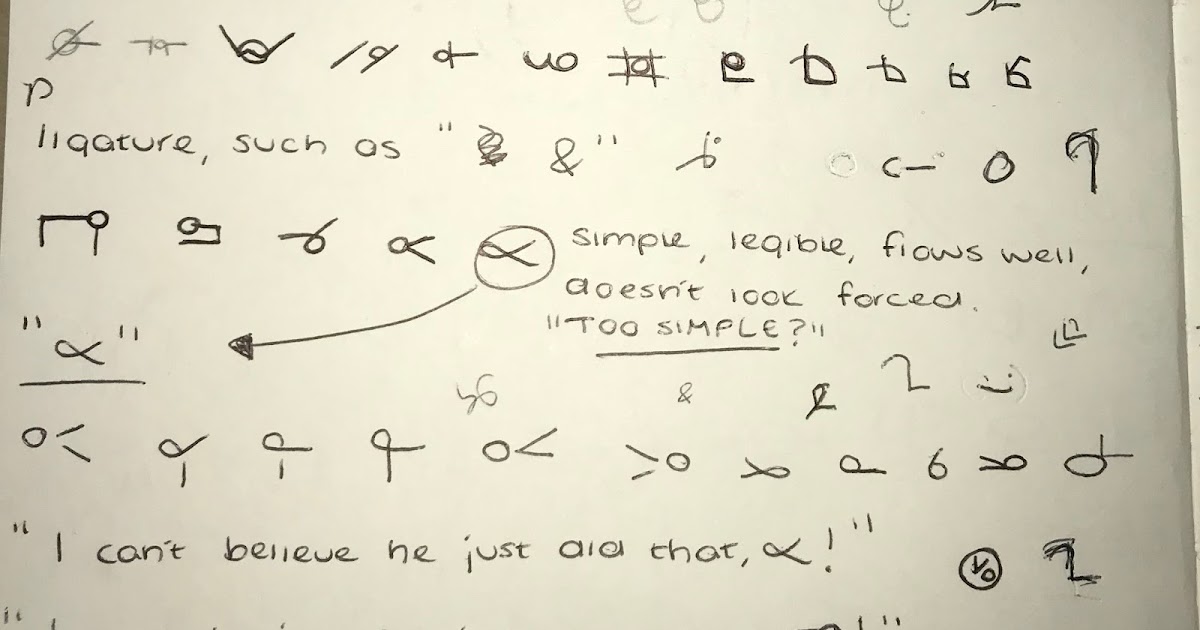 p
ligature, such as " & "
simple, legible, flows well,
doesn't look forced.
"TOO SIMPLE?"
"∝"
&
"I can't believe he just did that, ∝!"